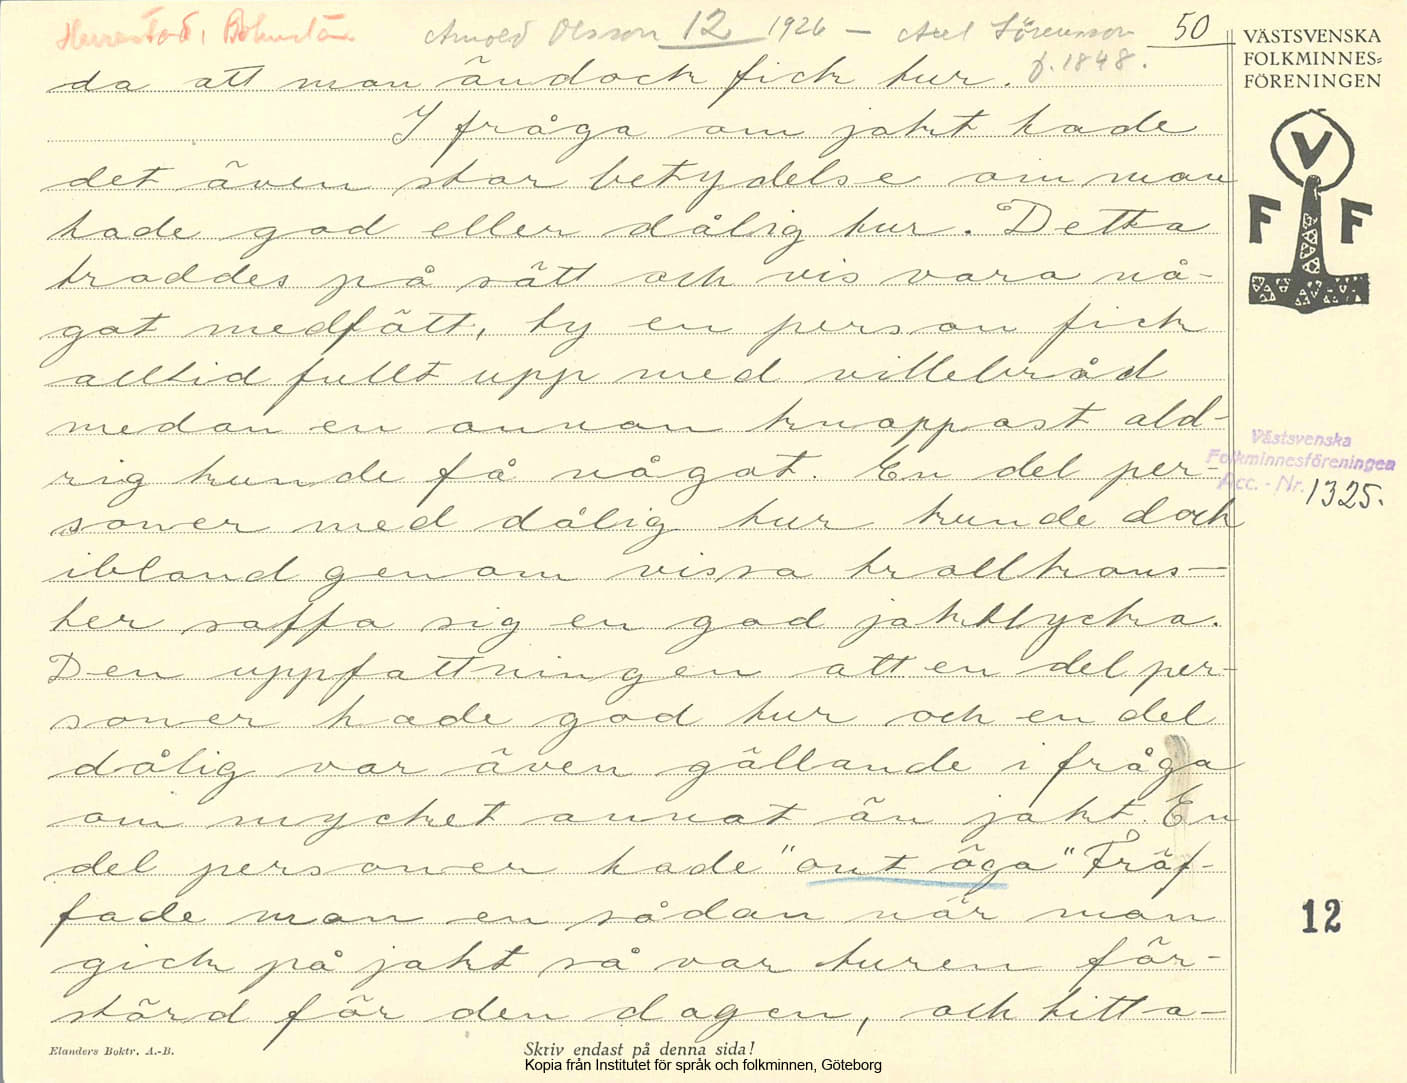 Herrestad, Bohuslän
Arnold Olsson 12 1926 – Axel Sörensson
f. 1848.
50
VÄSTSVENSKA
FOLKMINNES=
FÖRENINGEN
V
F F
da att man ändock fick tur.
I fråga om jakt hade
det även stor betydelse om man
hade god eller dålig tur. Detta
troddes på sätt och vis vara nå-
got medfött, ty en person fick
alltid fullt upp med villebråd
medan en annan knappast ald-
rig kunde få något. En del per-
soner med dålig tur kunde dock
ibland genom vissa trollkons-
ter saffa sig en god jaktlycka.
Den uppfattningen att en del per-
soner hade god tur och en del
dålig var även gällande i fråga
om mycket annat än jakt. En
del personer hade "ont öga" Träf-
fade man en sådan när man
gick på jakt så var turen för-
störd för den dagen, och hitta-
Västsvenska
Folkminnesföreningen
Acc. - Nr. 1325.
12
Elanders Boktr. A.-B.
Skriv endast på denna sida!
Kopia från Institutet för språk och folkminnen, Göteborg